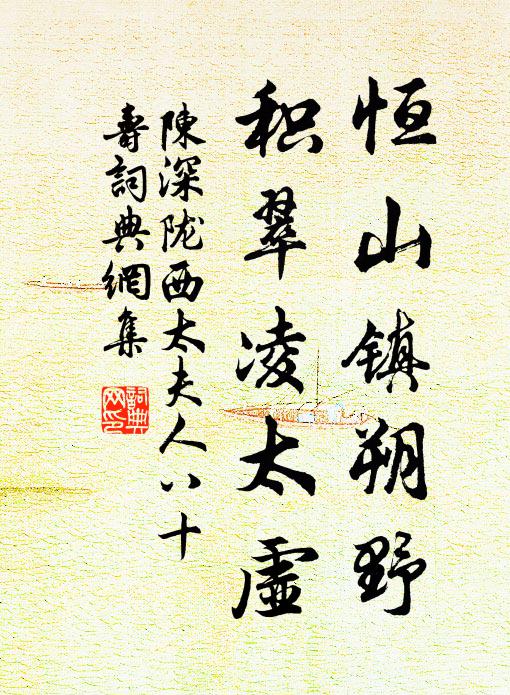 恒山镇朔野
积翠凌太虚
陳深陇西太夫人八十
壽詞典網集
詞典网印